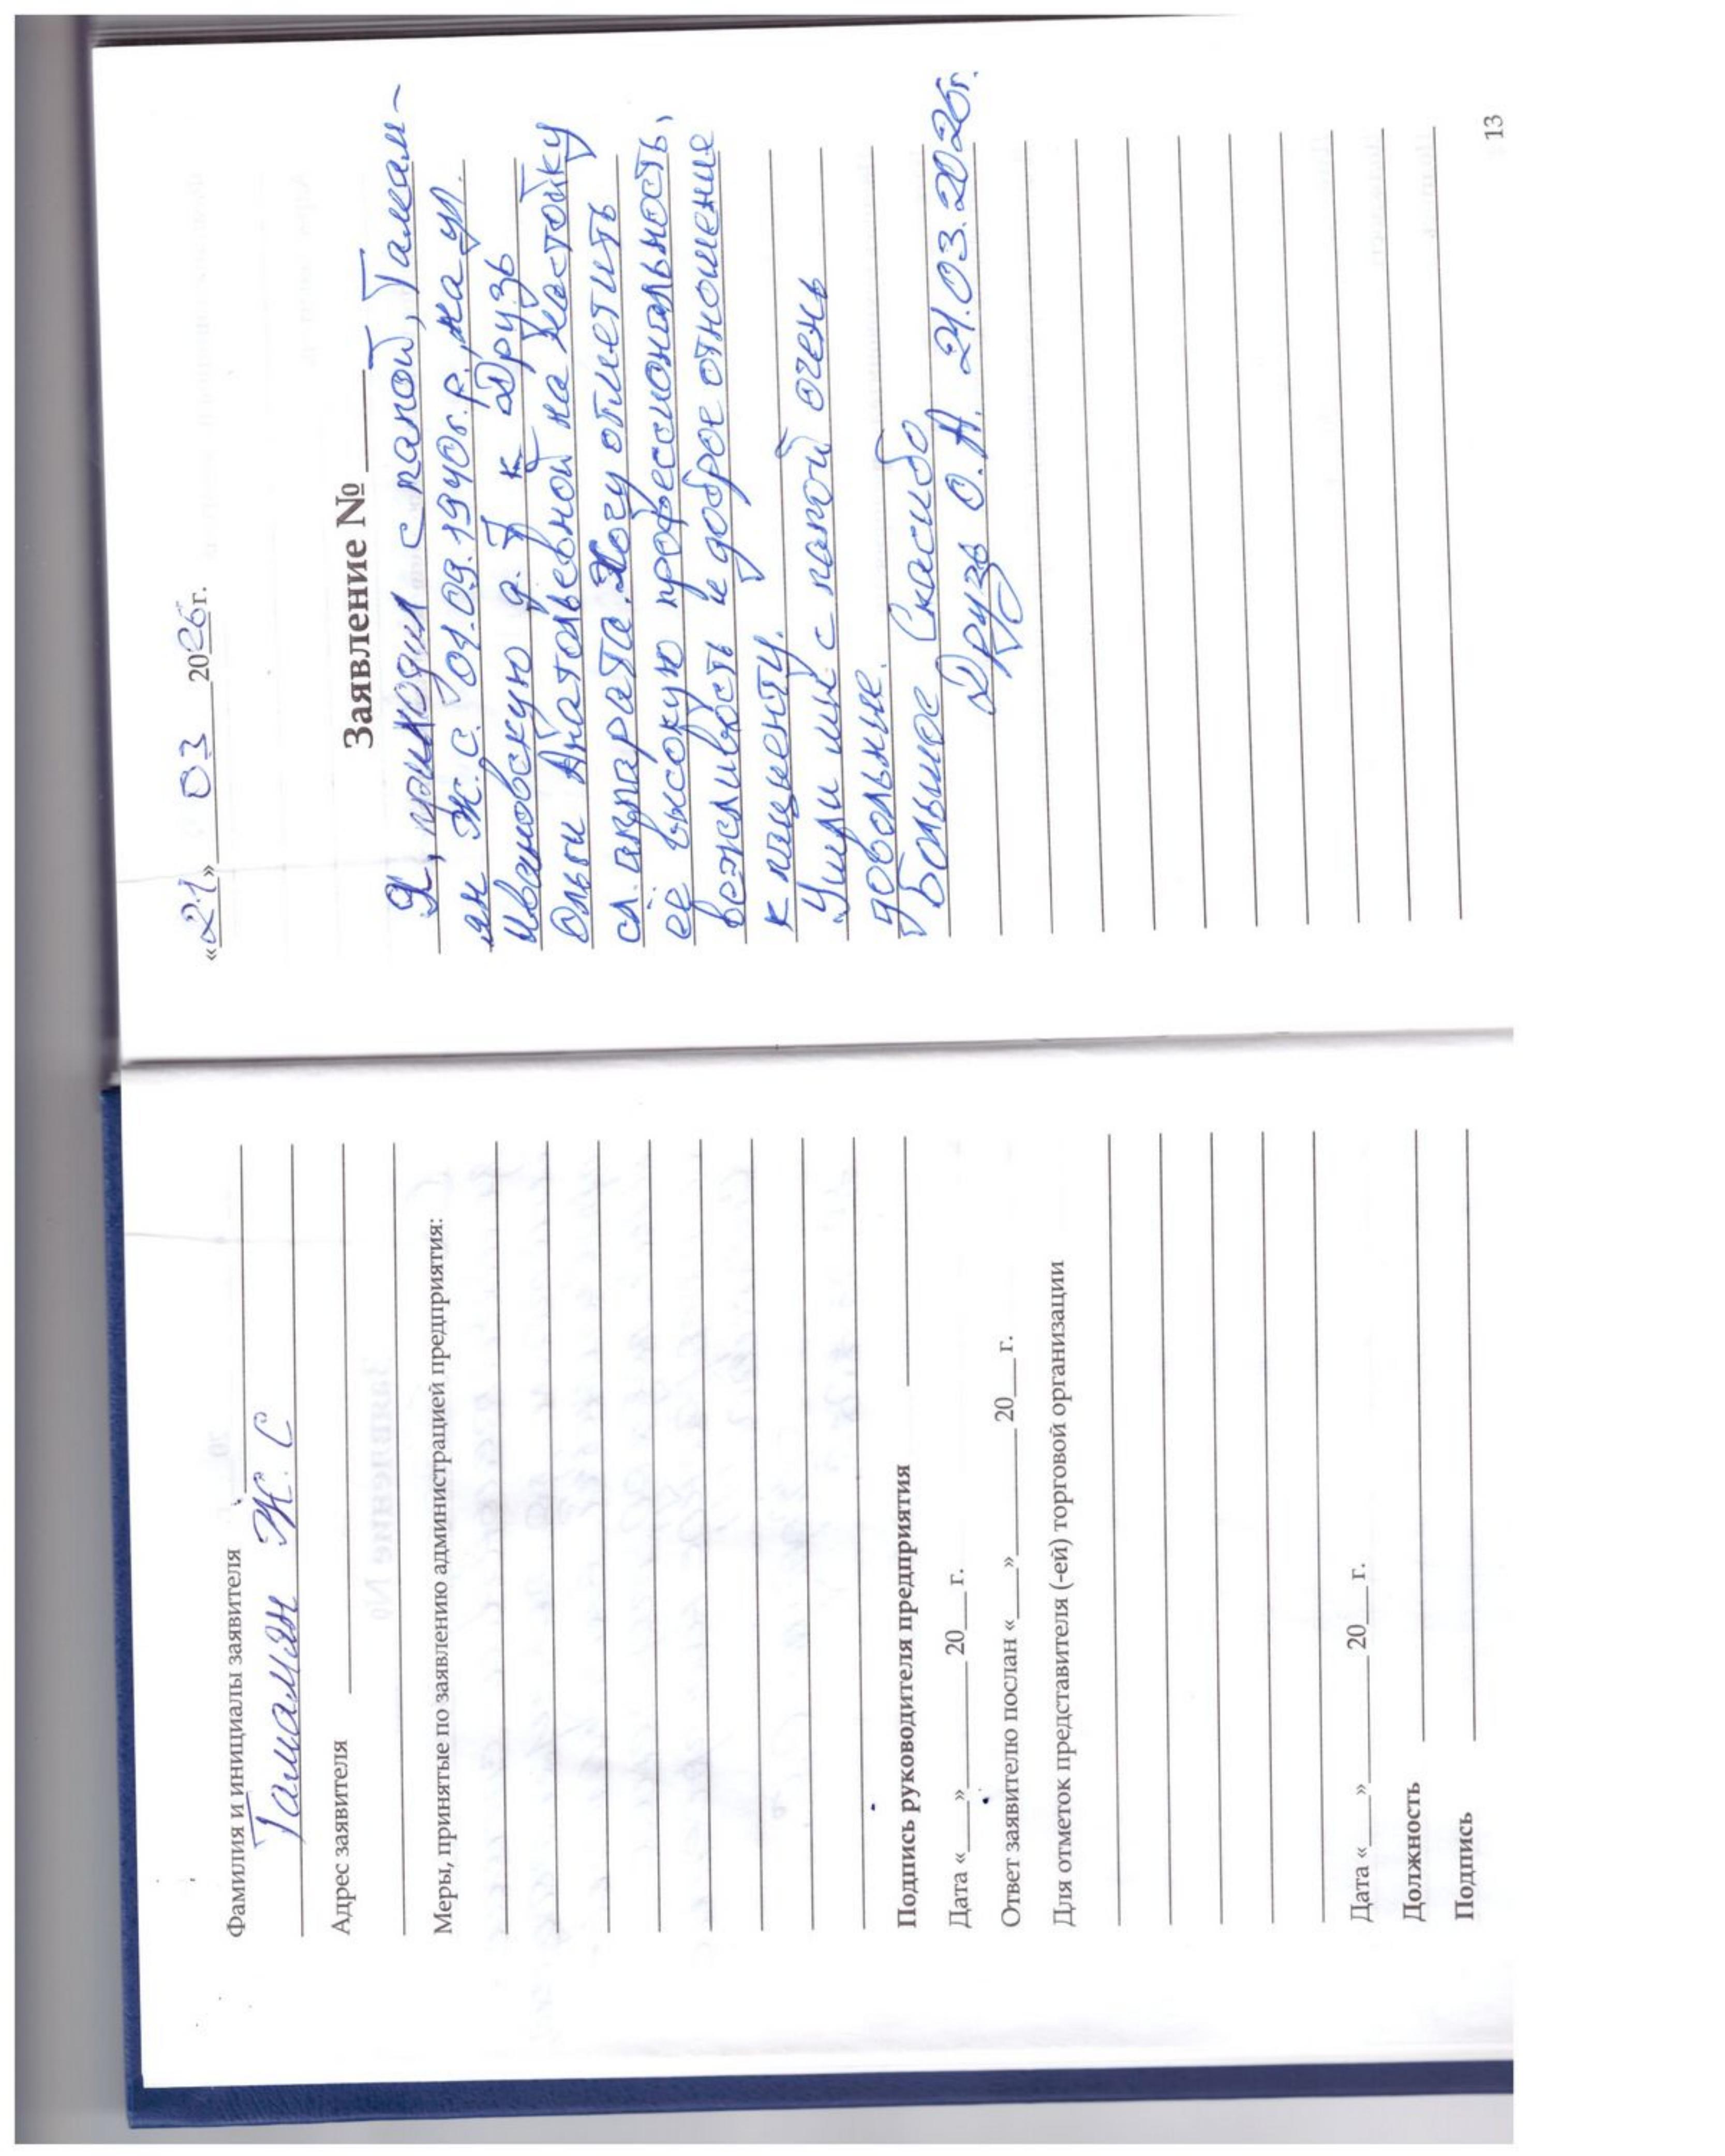 Фамилия и инициалы заявителя
Тамамян Ж. С
Адрес заявителя
Меры, принятые по заявлению администрацией предприятия:
Подпись руководителя предприятия
Дата «___» ________ 20__ г.
Ответ заявителю послан «___» ________ 20__ г.
Для отметок представителя (-ей) торговой организации
Дата «___» ________ 20__ г.
Должность
Подпись
«21» 03 2026г.
Заявление № ____
Я, приходил с папой, Тамам-
ян Ж.С. 01.09.1940г.р, на ул.
Ивановскую д. 7 к Друзь
Ольги Анатольевной на настойку
сл. аппарата. Хочу отметить
ее высокую профессиональность,
вежливость и доброе отношение
к пациенту.
Ушли мы с папой очень
довольные.
Большое Спасибо
Друзь О.А. 21.03.2026г.
13